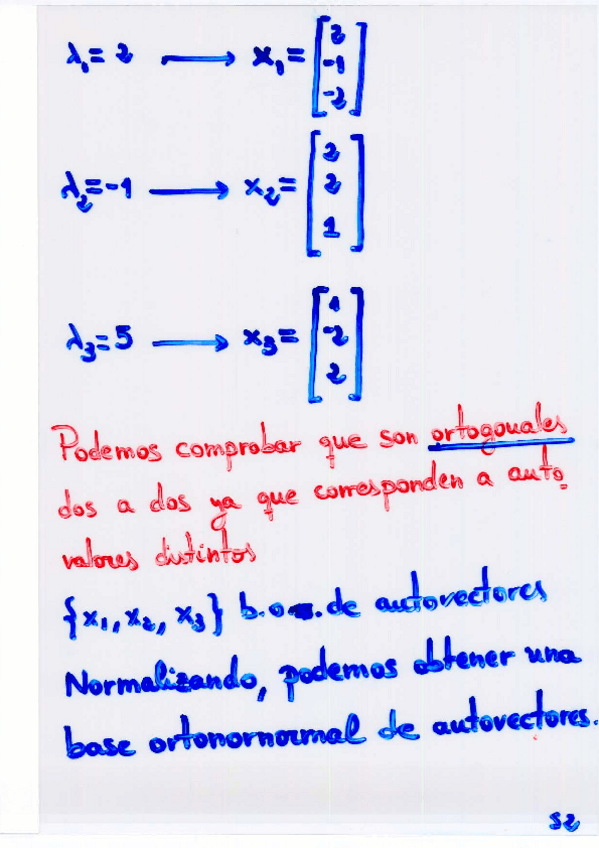 λ₁= 2 → x₁= [2 -1 -2]
λ₂=-1 → x₂= [2 2 1]
λ₃= 5 → x₃= [1 -2 2]
Podemos comprobar que son ortogonales
dos a dos ya que corresponden a auto-
valores distintos
{x₁, x₂, x₃} b.o. de autovectores
Normalizando, podemos obtener una
base ortonornormal de autovectores.
52